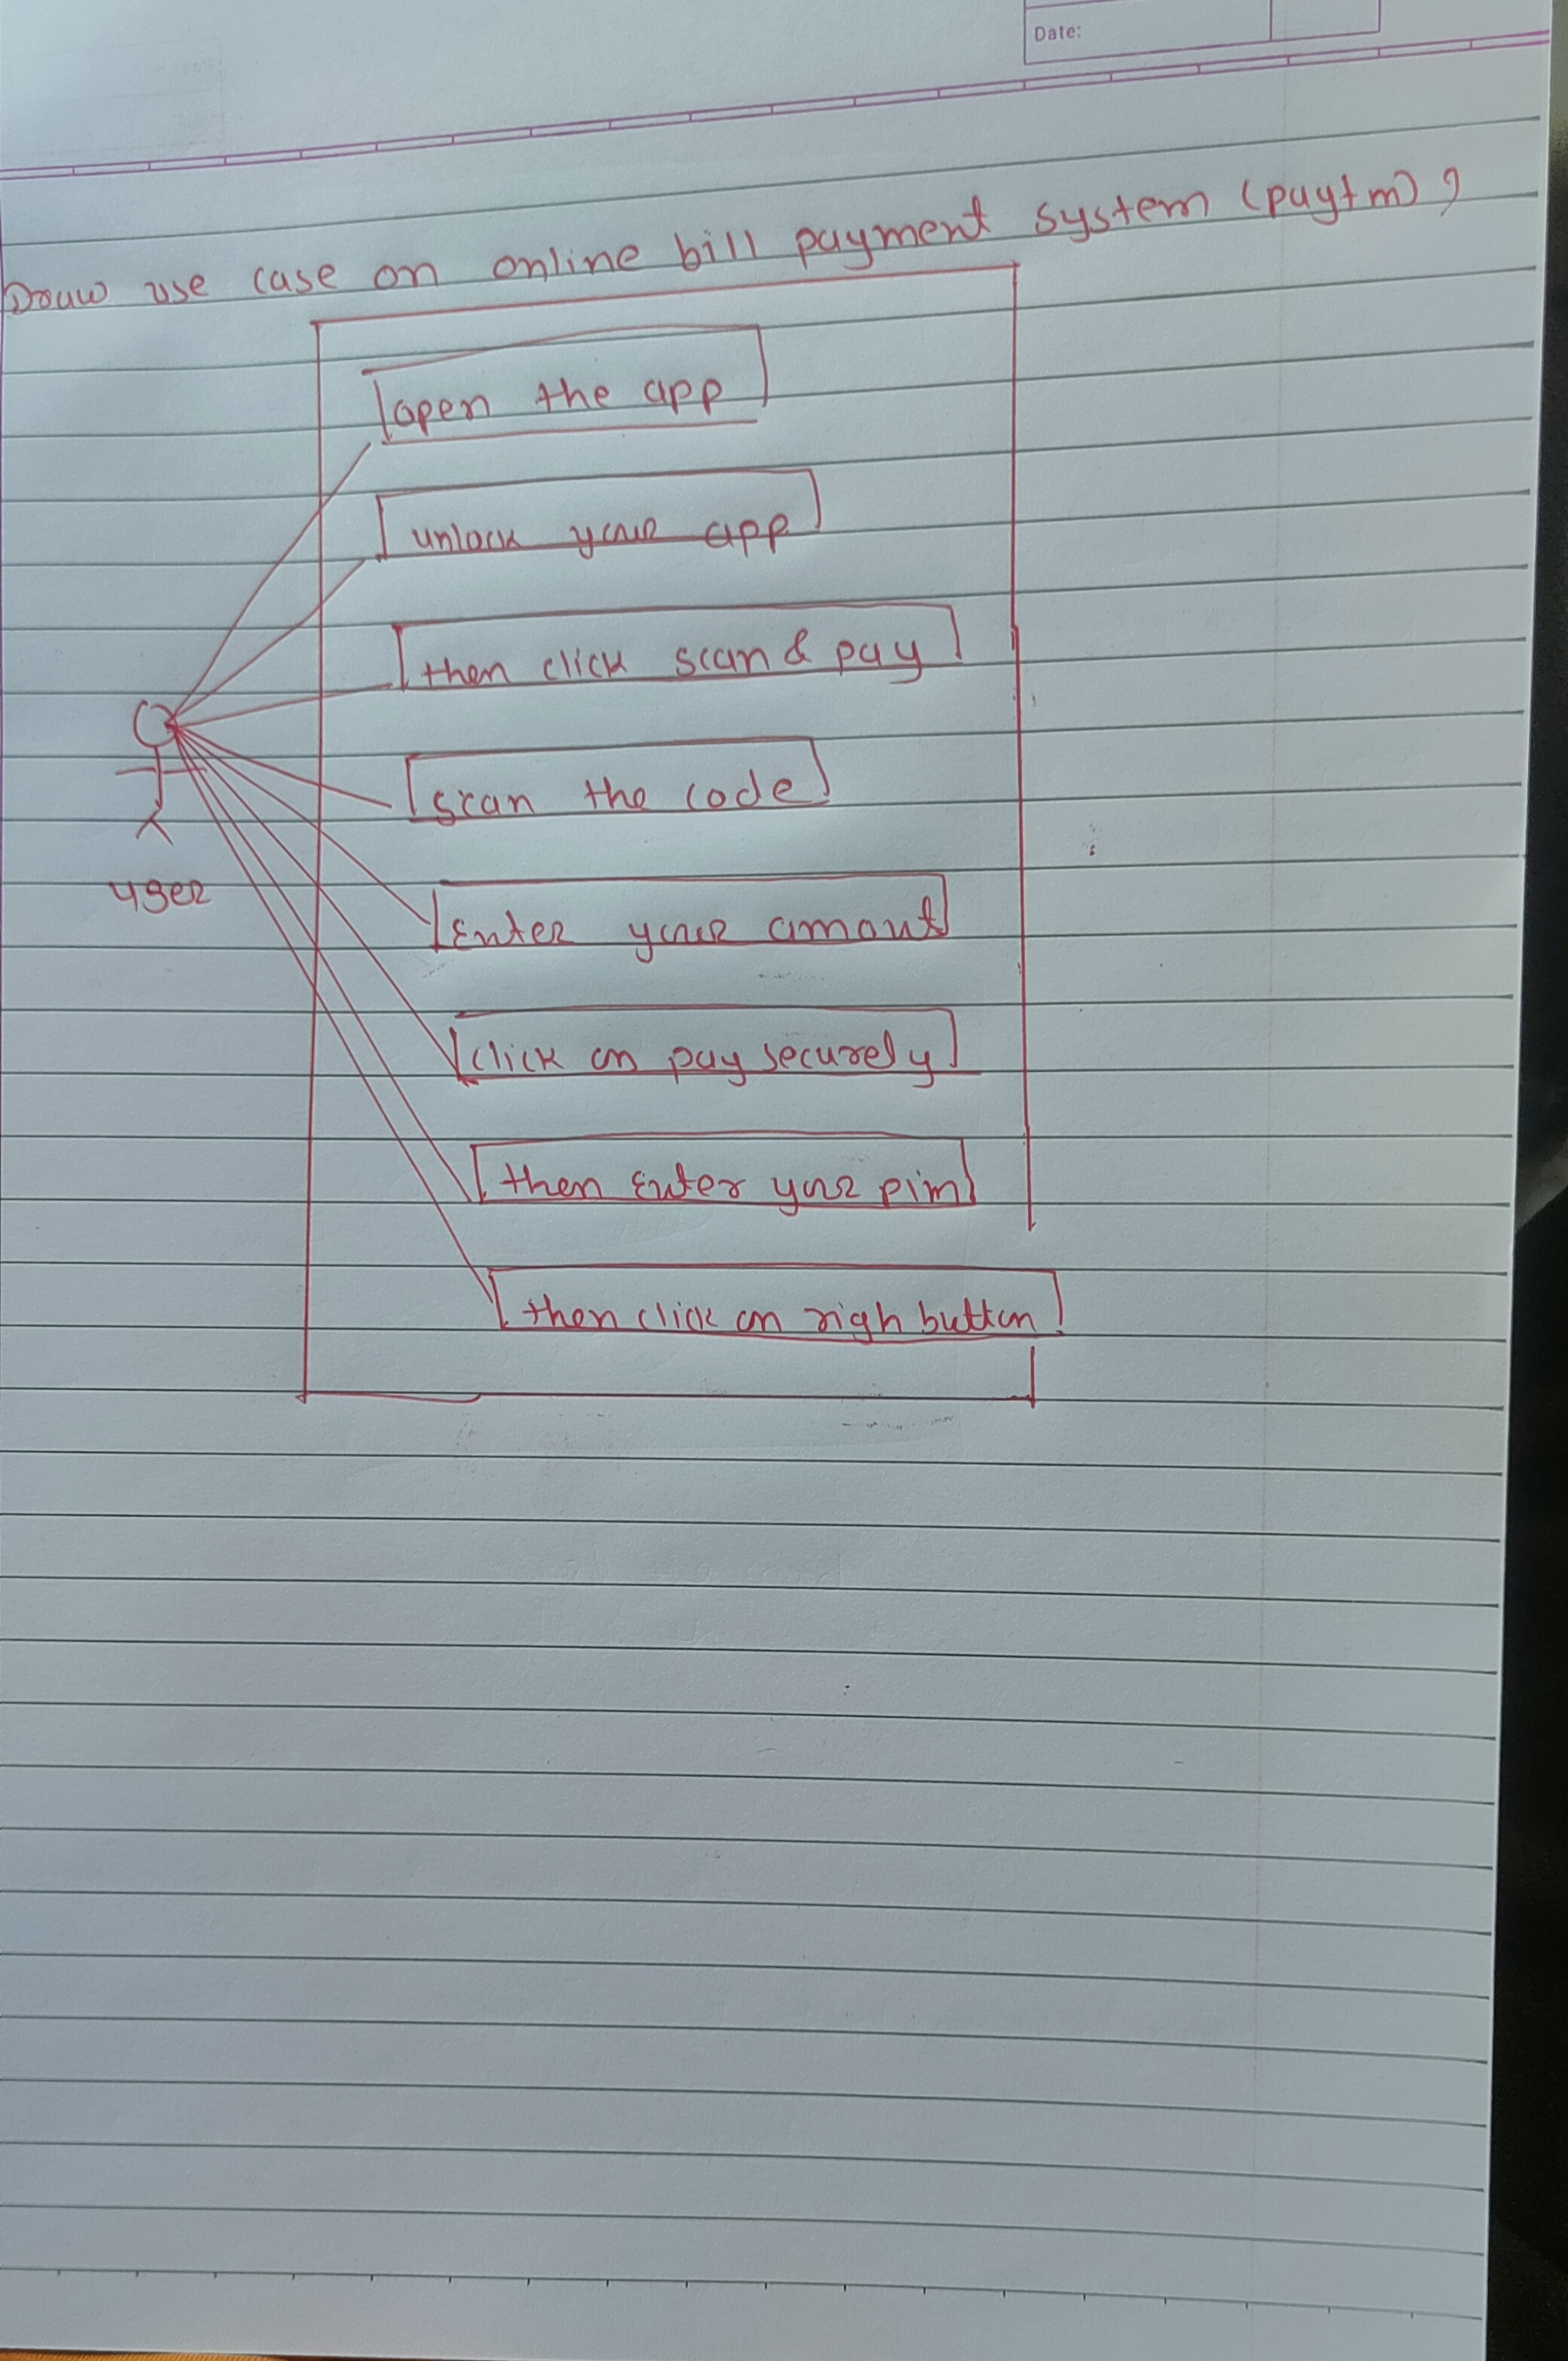 Date:
Draw use case on online bill payment system (paytm) ?
open the app
unlock your app
then click scan & pay
scan the code
user
Enter your amout
click on pay securely
then Enter your pim
then click on righ button